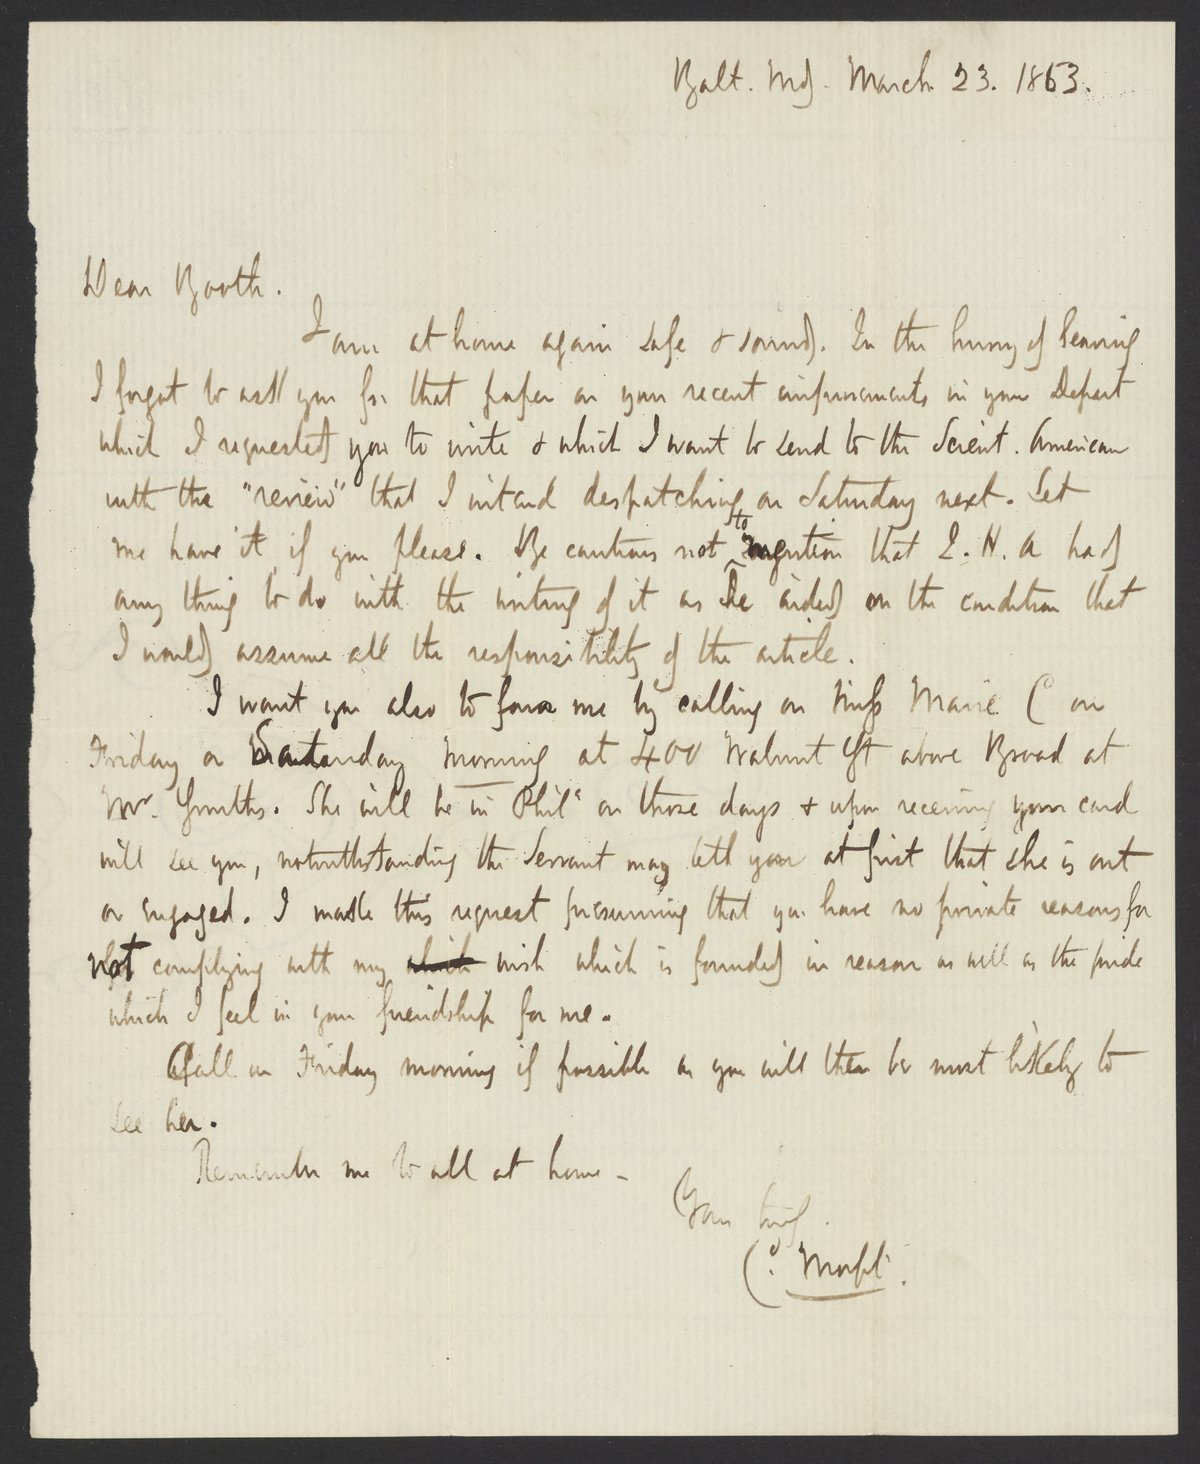 Balt. Md. March. 23. 1853.
Dear Booth.
I am at home again safe & sound. In the hurry of leaving
I forgot to ask you for that paper on your recent improvements in your Depart
which I requested you to write & which I want to send to the Scient. American
with the "review" that I intend despatching on Saturday next. Let
me have it if you please. Be cautious not to mention that L. H. A had
any thing to do with the writing of it as he aided on the condition that
I would assume all the responsibility of the article.
I want you also to favor me by calling on Miss Marie C on
Friday or Saturday Morning at 400 Walnut St above Broad at
Mr. Smiths. She will be in Phila on those days & upon receiving your card
will see you, notwithstanding the Servant may tell you at first that she is out
or engaged. I make this request presuming that you have no private reasons for
not complying with my which wish which is founded in reason as well as the pride
which I feel in your friendship for me.
Call on Friday morning if possible as you will then be most likely to
see her.
Remember me to all at home -
Your truly.
C. Morfit.